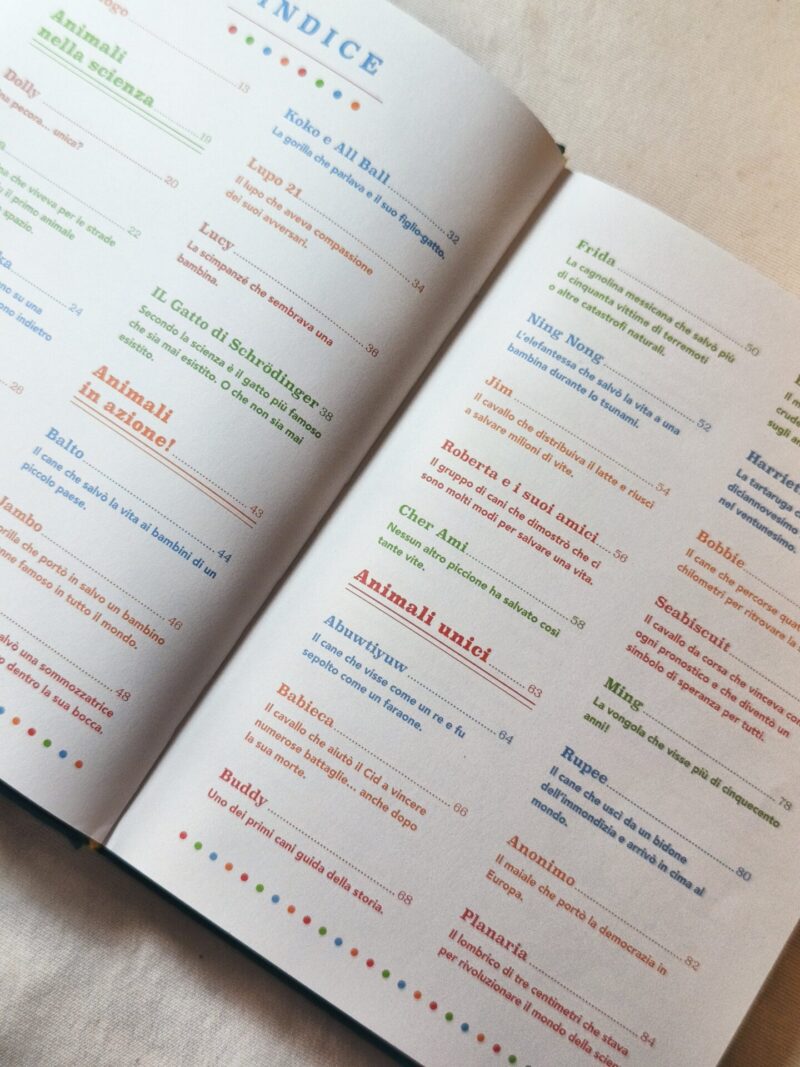 INDICE
Animali
nella scienza 19
13
Dolly
una pecora... unica? 20
che viveva per le strade
il primo animale
spazio. 22
24
su una
indietro
26
Koko e All Ball
La gorilla che parlava e il suo figlio-gatto. 32
Lupo 21
Il lupo che aveva compassione
dei suoi avversari. 34
Lucy
La scimpanzé che sembrava una
bambina. 36
IL Gatto di Schrödinger 38
Secondo la scienza è il gatto più famoso
che sia mai esistito. O che non sia mai
esistito.
Animali
in azione! 43
Balto
Il cane che salvò la vita ai bambini di un
piccolo paese. 44
Jambo
gorilla che portò in salvo un bambino
famoso in tutto il mondo. 46
salvò una sommozzatrice
dentro la sua bocca. 48
Frida
La cagnolina messicana che salvò più
di cinquanta vittime di terremoti
o altre catastrofi naturali. 50
Ning Nong
L'elefantessa che salvò la vita a una
bambina durante lo tsunami. 52
Jim
Il cavallo che distribuiva il latte e riuscì
a salvare milioni di vite. 54
Roberta e i suoi amici
Il gruppo di cani che dimostrò che ci
sono molti modi per salvare una vita. 56
Cher Ami
Nessun altro piccione ha salvato così
tante vite. 58
Animali unici 63
Abuwtiyuw
Il cane che visse come un re e fu
sepolto come un faraone. 64
Babieca
Il cavallo che aiutò il Cid a vincere
numerose battaglie... anche dopo
la sua morte. 66
Buddy
Uno dei primi cani guida della storia. 68
Harriet
La tartaruga
diciannovesimo
nel ventunesimo.
Bobbie
Il cane che percorse
chilometri per ritrovare la
Seabiscuit
Il cavallo da corsa che vinceva
ogni pronostico e che diventò un
simbolo di speranza per tutti.
Ming
La vongola che visse più di cinquecento
anni! 78
Rupee
Il cane che uscì da un bidone
dell'immondizia e arrivò in cima al
mondo. 80
Anonimo
Il maiale che portò la democrazia in
Europa. 82
Planaria
Il lombrico di tre centimetri che stava
per rivoluzionare il mondo della 84